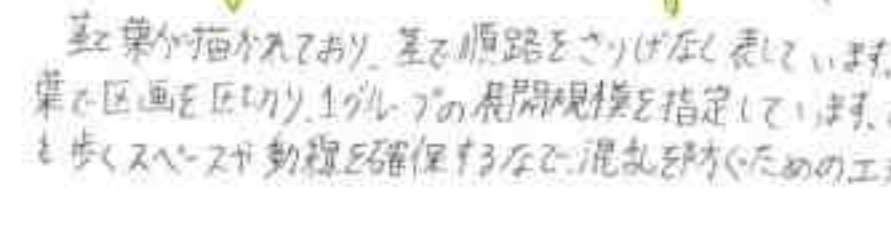 茎と葉が描かれており、茎で順路をさりげなく表しています。
葉で区画を区切り、1グループの展開規模を指定しています。
も歩くスペースや動線を確保するなで、混乱を防ぐための工